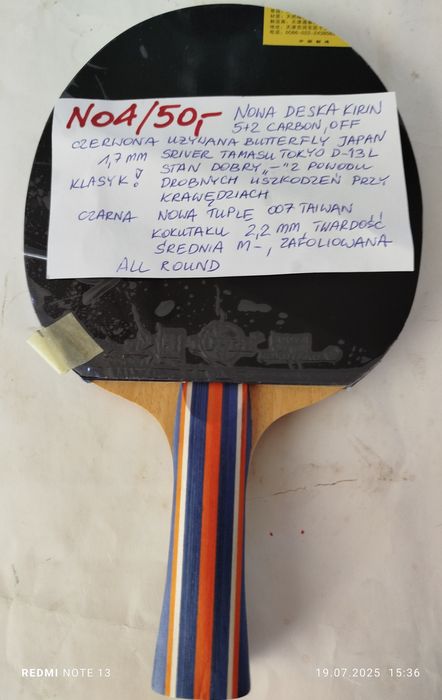 NO4/50,- NOWA DESKA KIRIN
5+2 CARBON, OFF
CZERWONA UŻYWANA BUTTERFLY JAPAN
1,7 MM SRIVER TAMASU TOKYO D-13L
STAN DOBRY „-" Z POWODU
KLASYK! DROBNYCH USZKODZEŃ PRZY
KRAWĘDZIACH
CZARNA NOWA TUPLE 007 TAIWAN
KOKUTAKU 2,2 MM, TWARDOŚĆ
ŚREDNIA M-, ZAFOLIOWANA
ALL ROUND
REDMI NOTE 13
19.07.2025 15:36